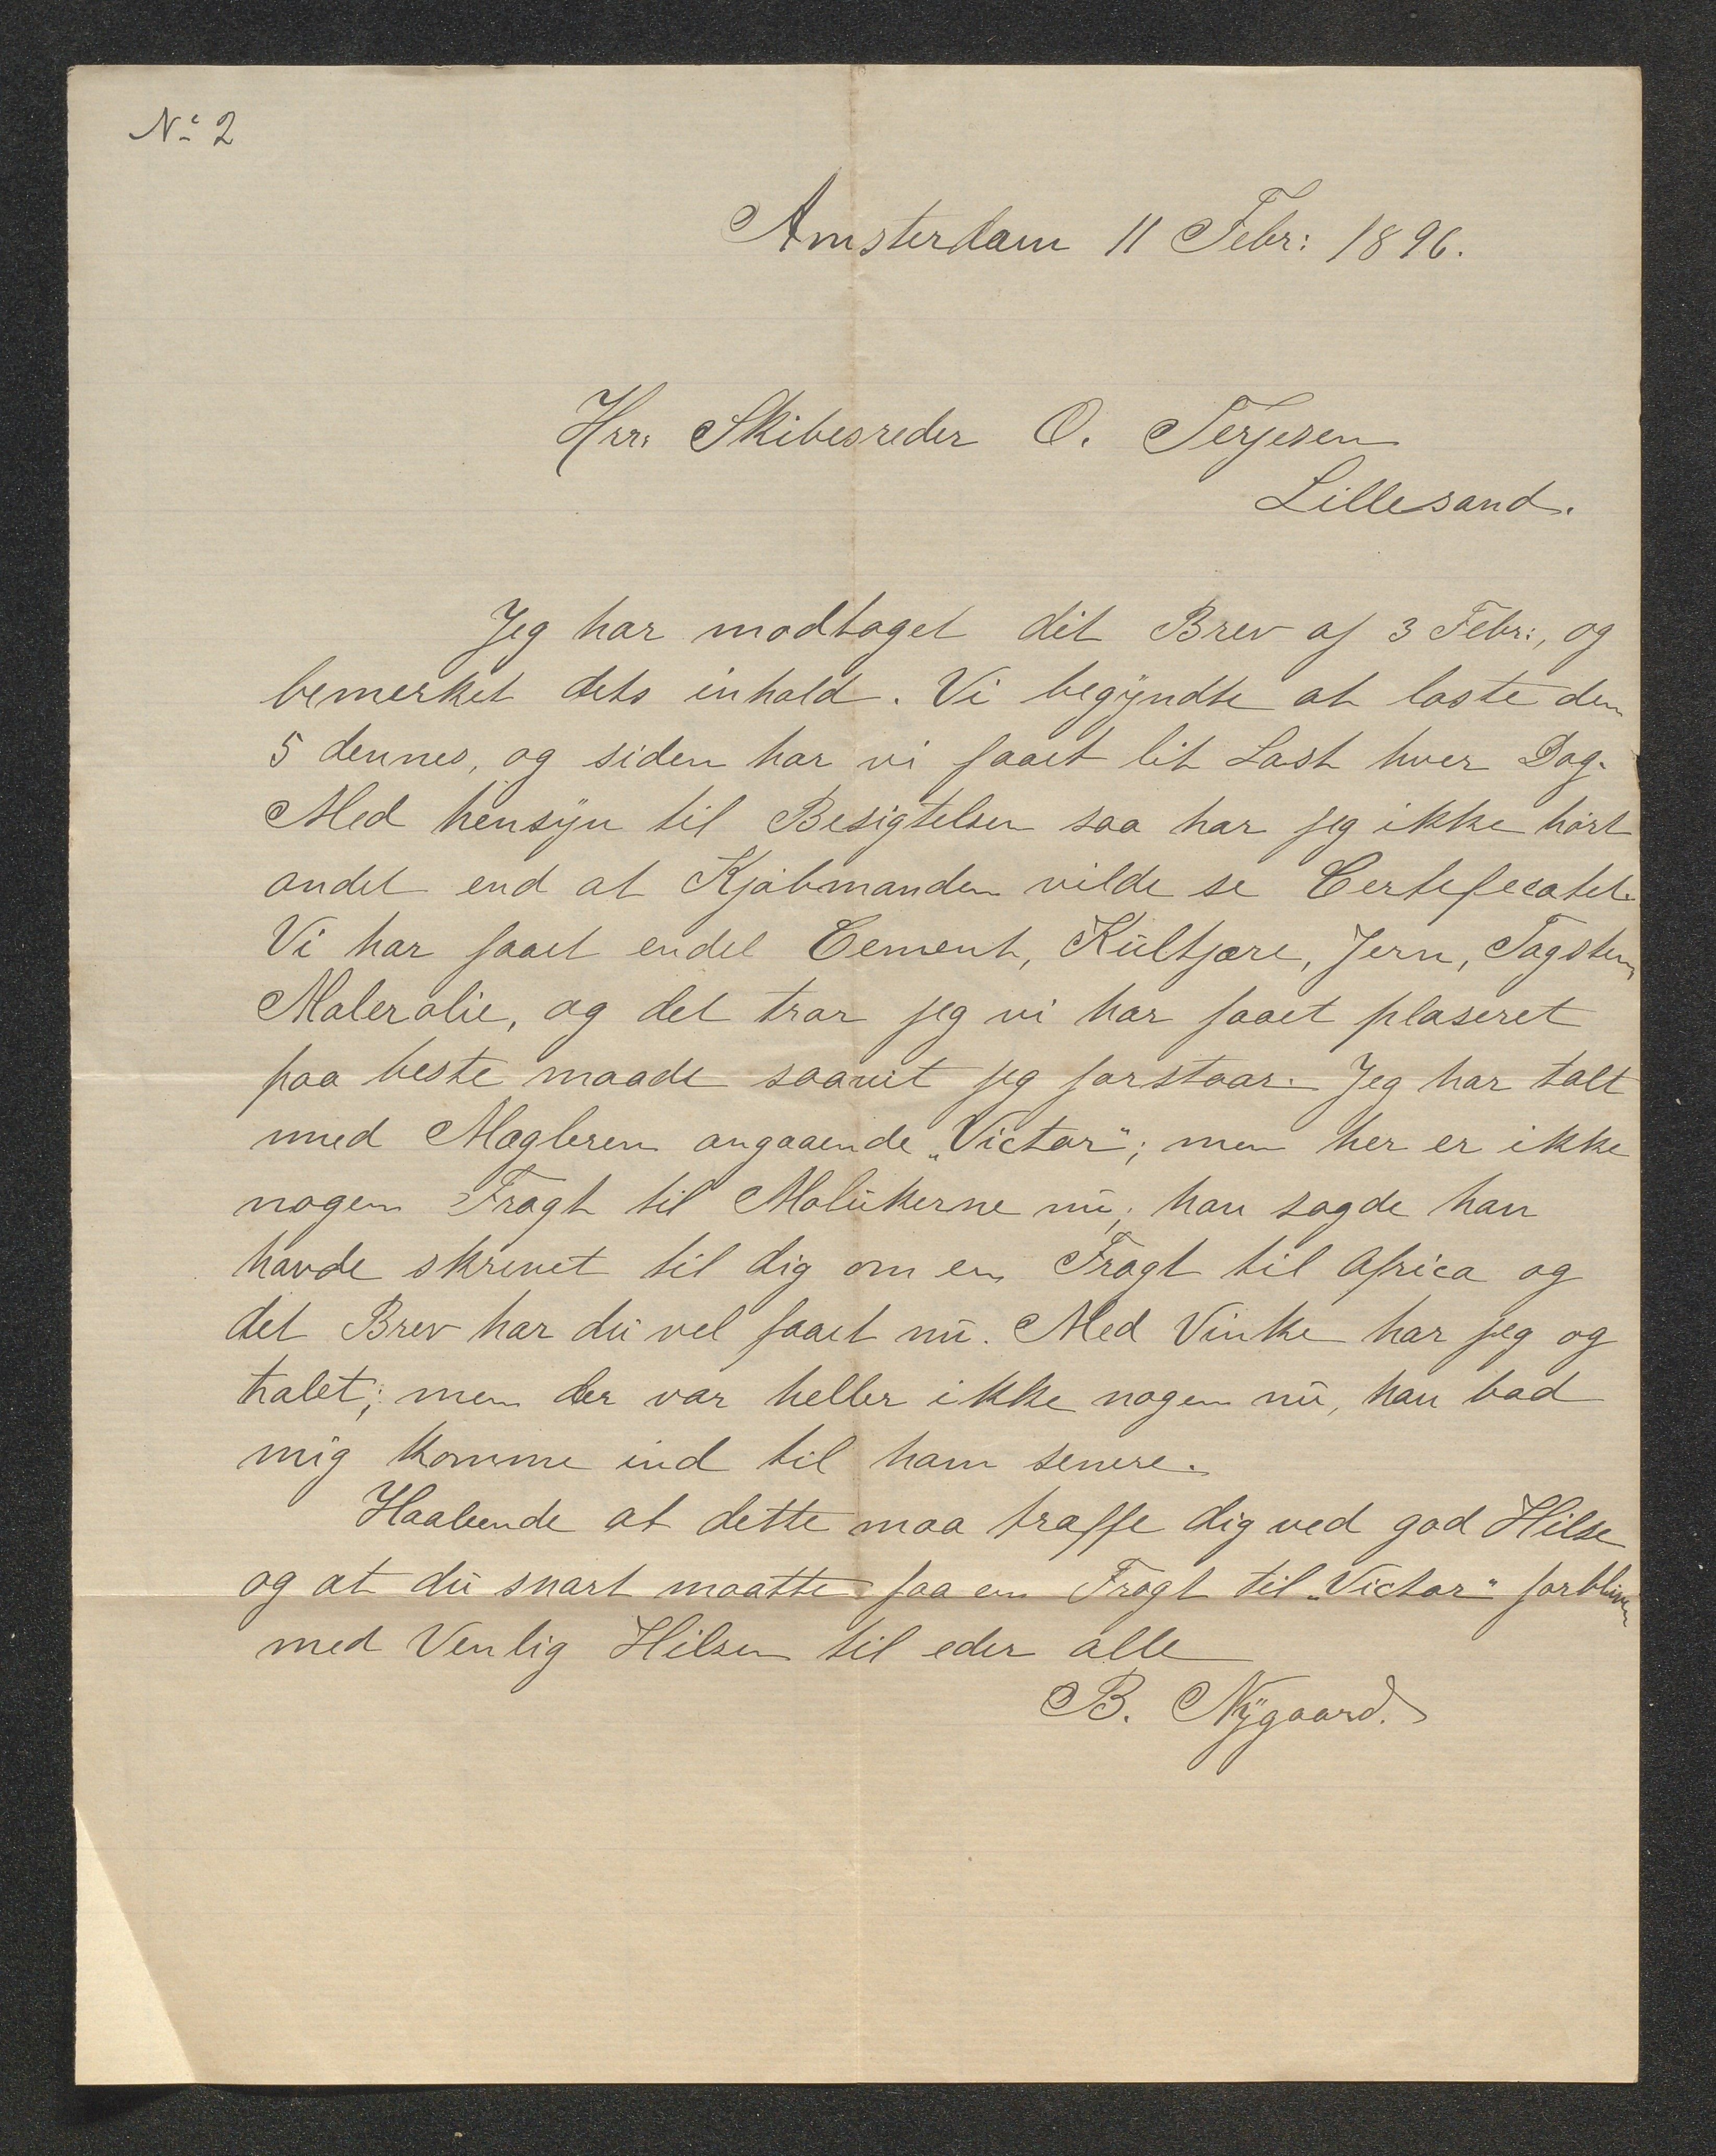 No 2
Amsterdam 11 Febr: 1896.
Hrr. Skibesreder O. Terjesen
Lillesand.
Jeg har modtaget dit Brev af 3 Febr:, og
bemerket dets inhold. Vi begyndte at laste den
5 dennes, og siden har vi faaet lit Last hver Dag.
Med hensyn til Besigtelsen saa har jeg ikke hørt
andet end at Kjøbmanden vilde se Certefecatet.
Vi har faaet endel Cement, Kultjære, Jern, Tagsten
Maleralie, og det tror jeg vi har faaet plaseret
paa beste maade saavit jeg forstaar. Jeg har talt
med Mægleren angaaende „Victor“; men her er ikke
nogen Fragt til Molukerne nu; han sagde han
havde skrevet til dig om en Fragt til Africa og
det Brev har du vel faaet nu. Med Vinke har jeg og
talet; men der var heller ikke nogen nu, han bad
mig komme ind til ham senere.
Haabende at dette maa træffe dig ved god Hilse
og at du snart maatte faa en Fragt til „Victor“ forbliver
med Venlig Hilsen til eder alle
B. Nygaard.